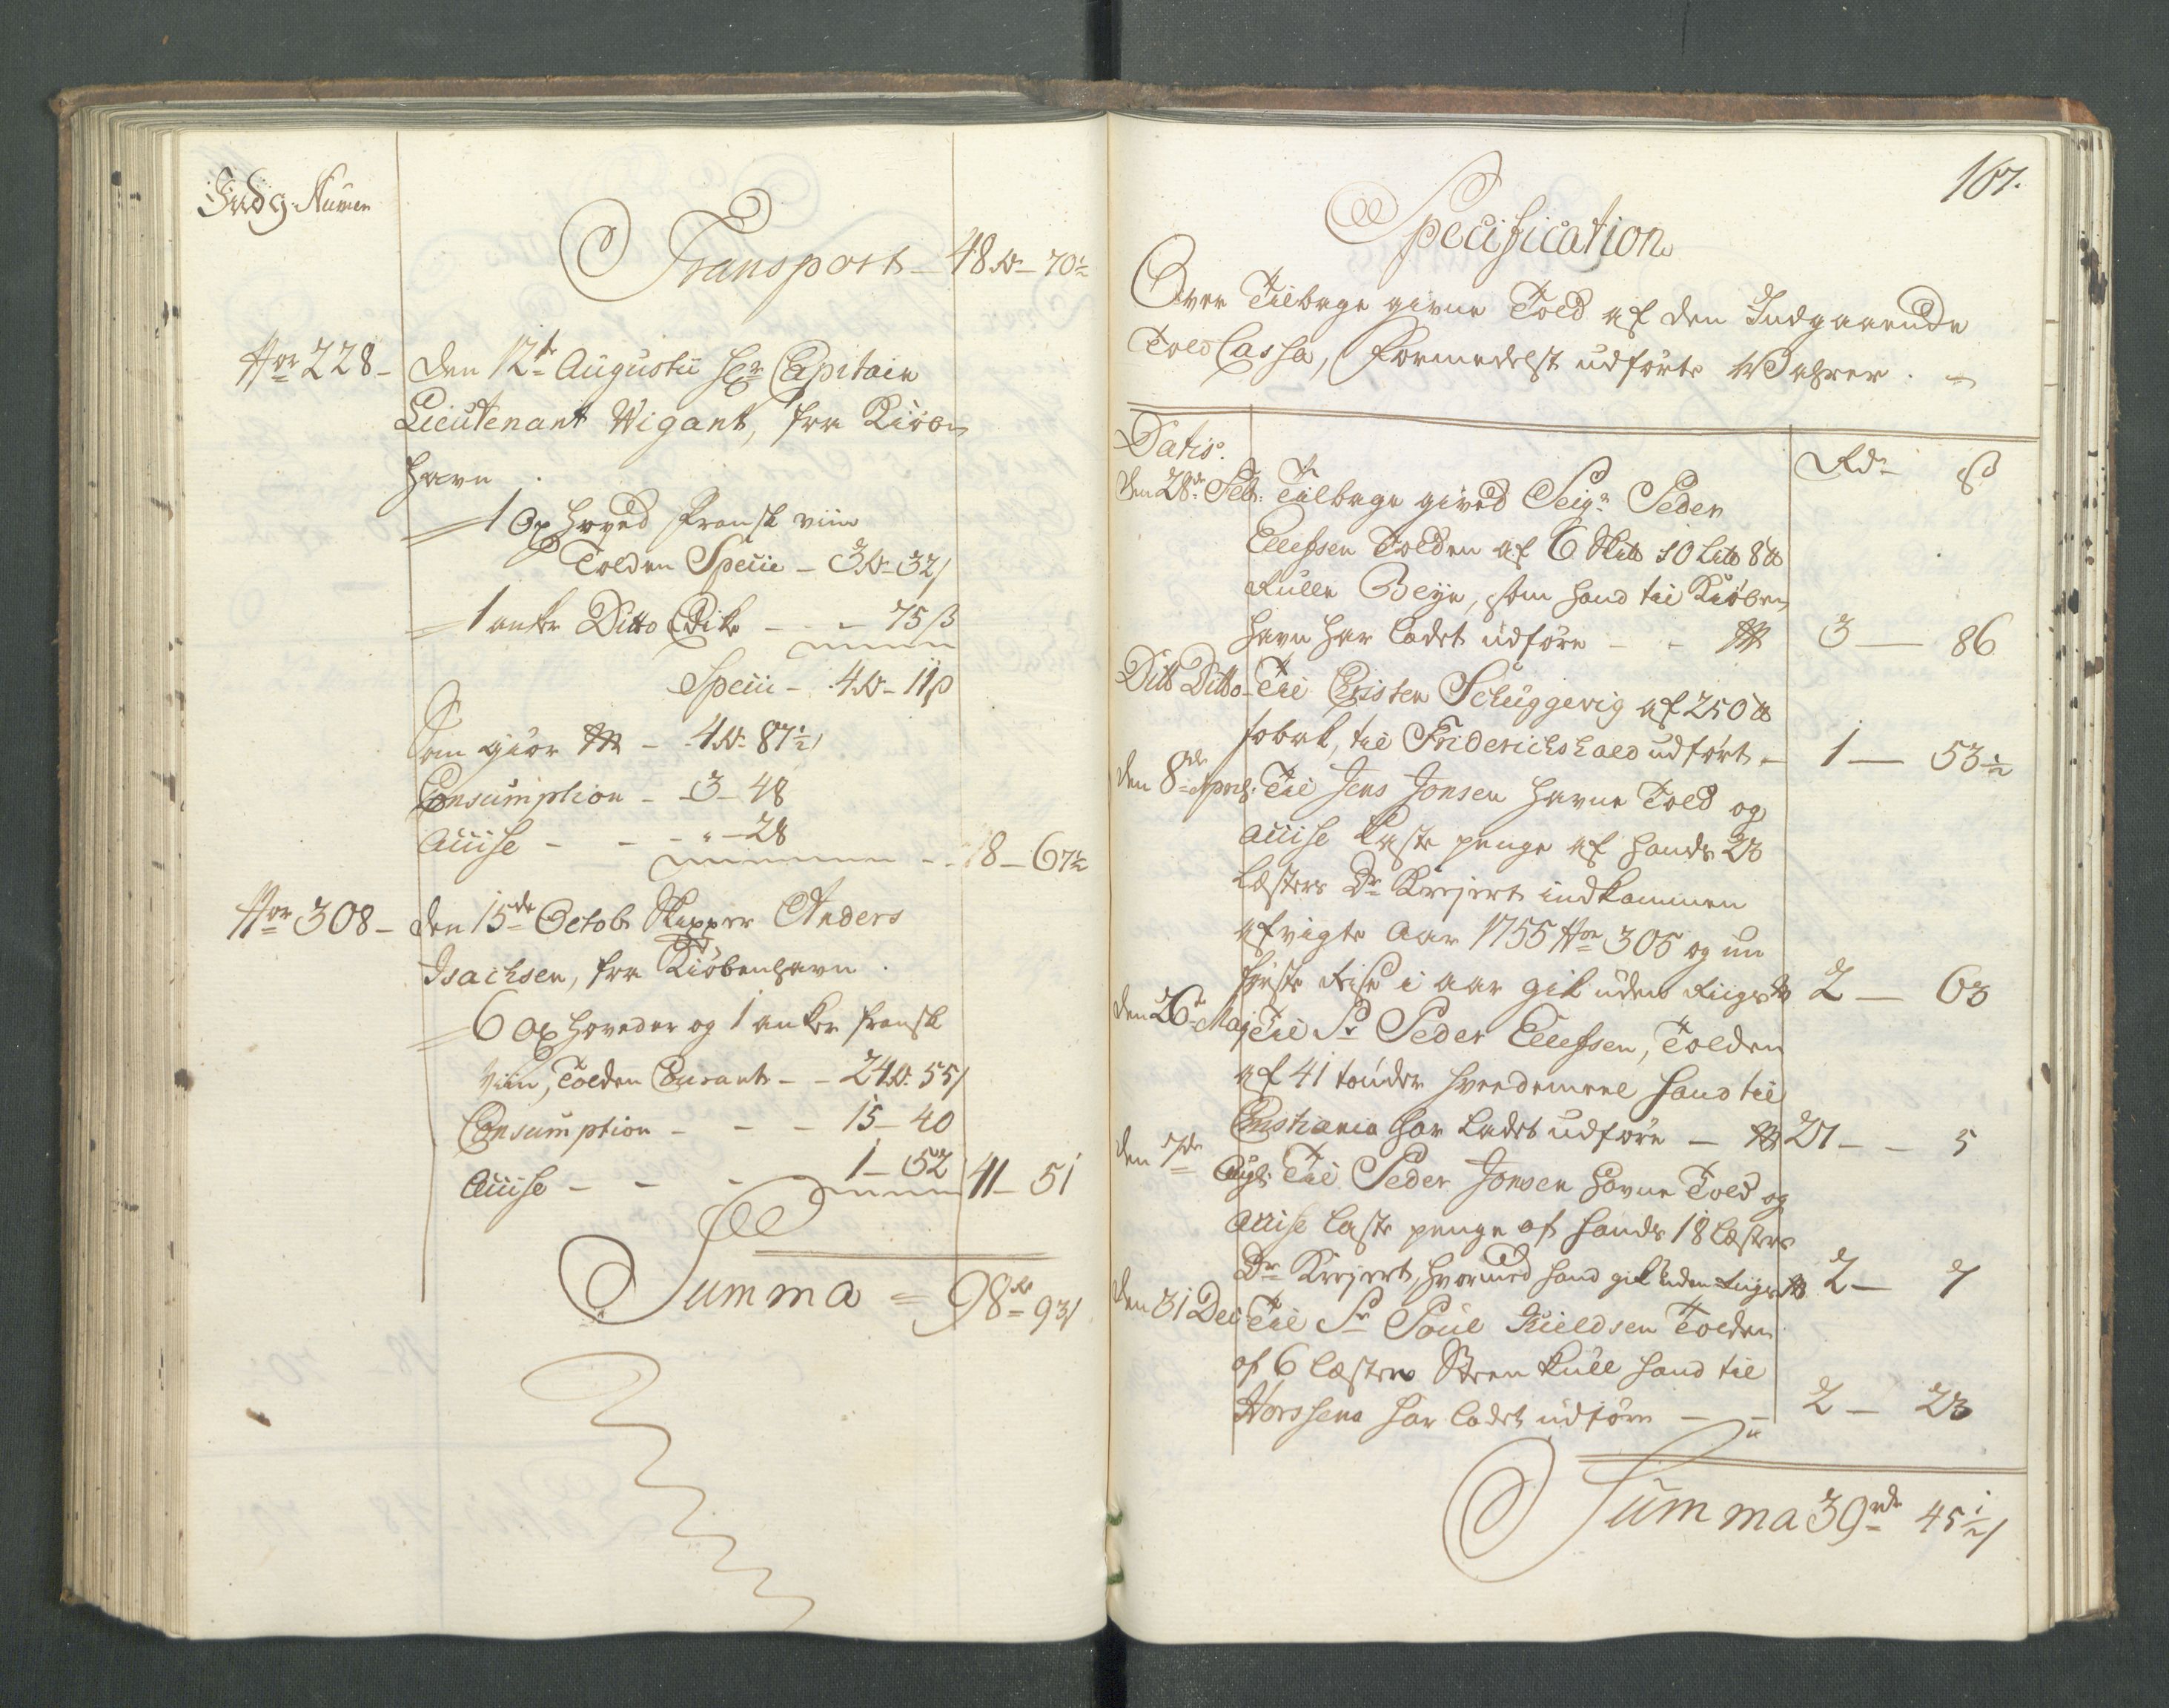 Indg. Numer
Transport - 48 rd - 70½
Nor 228 - Den 12te Augustii Hr Capitain
Lieutenant Wigant, fra Kiöben
havn.
1 Oxhoved Fransk viin
Tolden Specie - 3 rd - 32 /
1 anker Ditto Edike - - 75 ß
Specie - 4 rd - 11 ß
Som giör - 4 rd - 87½ /
Consumption - 3 - 48
Accise - - - " - 28
8 - 67½
Nor 308 - Den 15de Octob. Skipper Anders
Isachsen, fra Kiöbenhavn.
6 Oxhoveder og 1 anker fransk
Viin, Tolden Courant - - 24 rd. 55 /
Consumption - - - 15 - 40
Accise - - - 1 - 52 41 - 51
Summa = 98 rd - 93 /
167.
Specification
Over Tilbage givne Told af den Indgaaende
Told Cassa, Formedelst udförte Wahrer.
Datis. Rdr ß
Den 28de Feb: Tilbage gived Seigr Peder
Ellefsen Tolden af 6 Sk℔ 10 L℔ 8 ℔
Rulle, som hand til Kiöben
havn har ladet udföre - - 3 - 86
Ditt Ditto - Til Christen Schuggevig af 250 ℔
tobak, til Friderichshald udfört - 1 - 53½
Den 8de April. Til Jens Jonsen Havne Told og
accise Læste penge af hands 23
Læsters Dr Krejert indkommen
afvigte Aar 1755 Nor 305 og nu
förste Reise i aar gik uden Riigs 2 - 63
Den 26te Maj Til Sr Peder Ellefsen, Tolden
af 41 tönder Hvedemeel hand til
Christiania har ladet udföre - 27 - - 5
Den 7de
Aug: Til Peder Jonsen Havne Told og
accise Læste penge af hands 18 Læsters
Dr Krejert, hvormed hand gik uden Riigs 2 - 7
Den 31 Dec Til Sr Poul Kieldsen Tolden
af 6 Læster Steen Kull hand til
Horssens har ladet udföre - - 2 - 23
Summa 39 rdr 45½ /